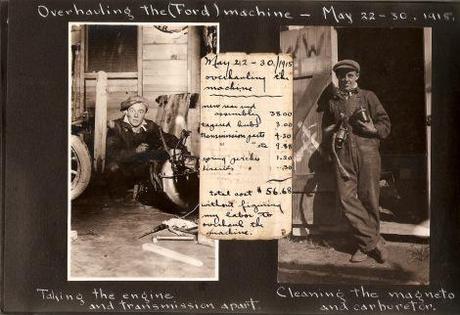 Overhauling the (Ford) machine – May 22-30. 1915.
May 22-30/1915
overhauling the
machine
new rear end
assembly 38.00
hubs 3.00
transmission parts 4.30
" etc 9.88
spring perches 1.20
.30
total cost $56.68
without figuring
my labor to
overhaul the
machine.
Taking the engine
and transmission apart.
Cleaning the magneto
and carburetor.